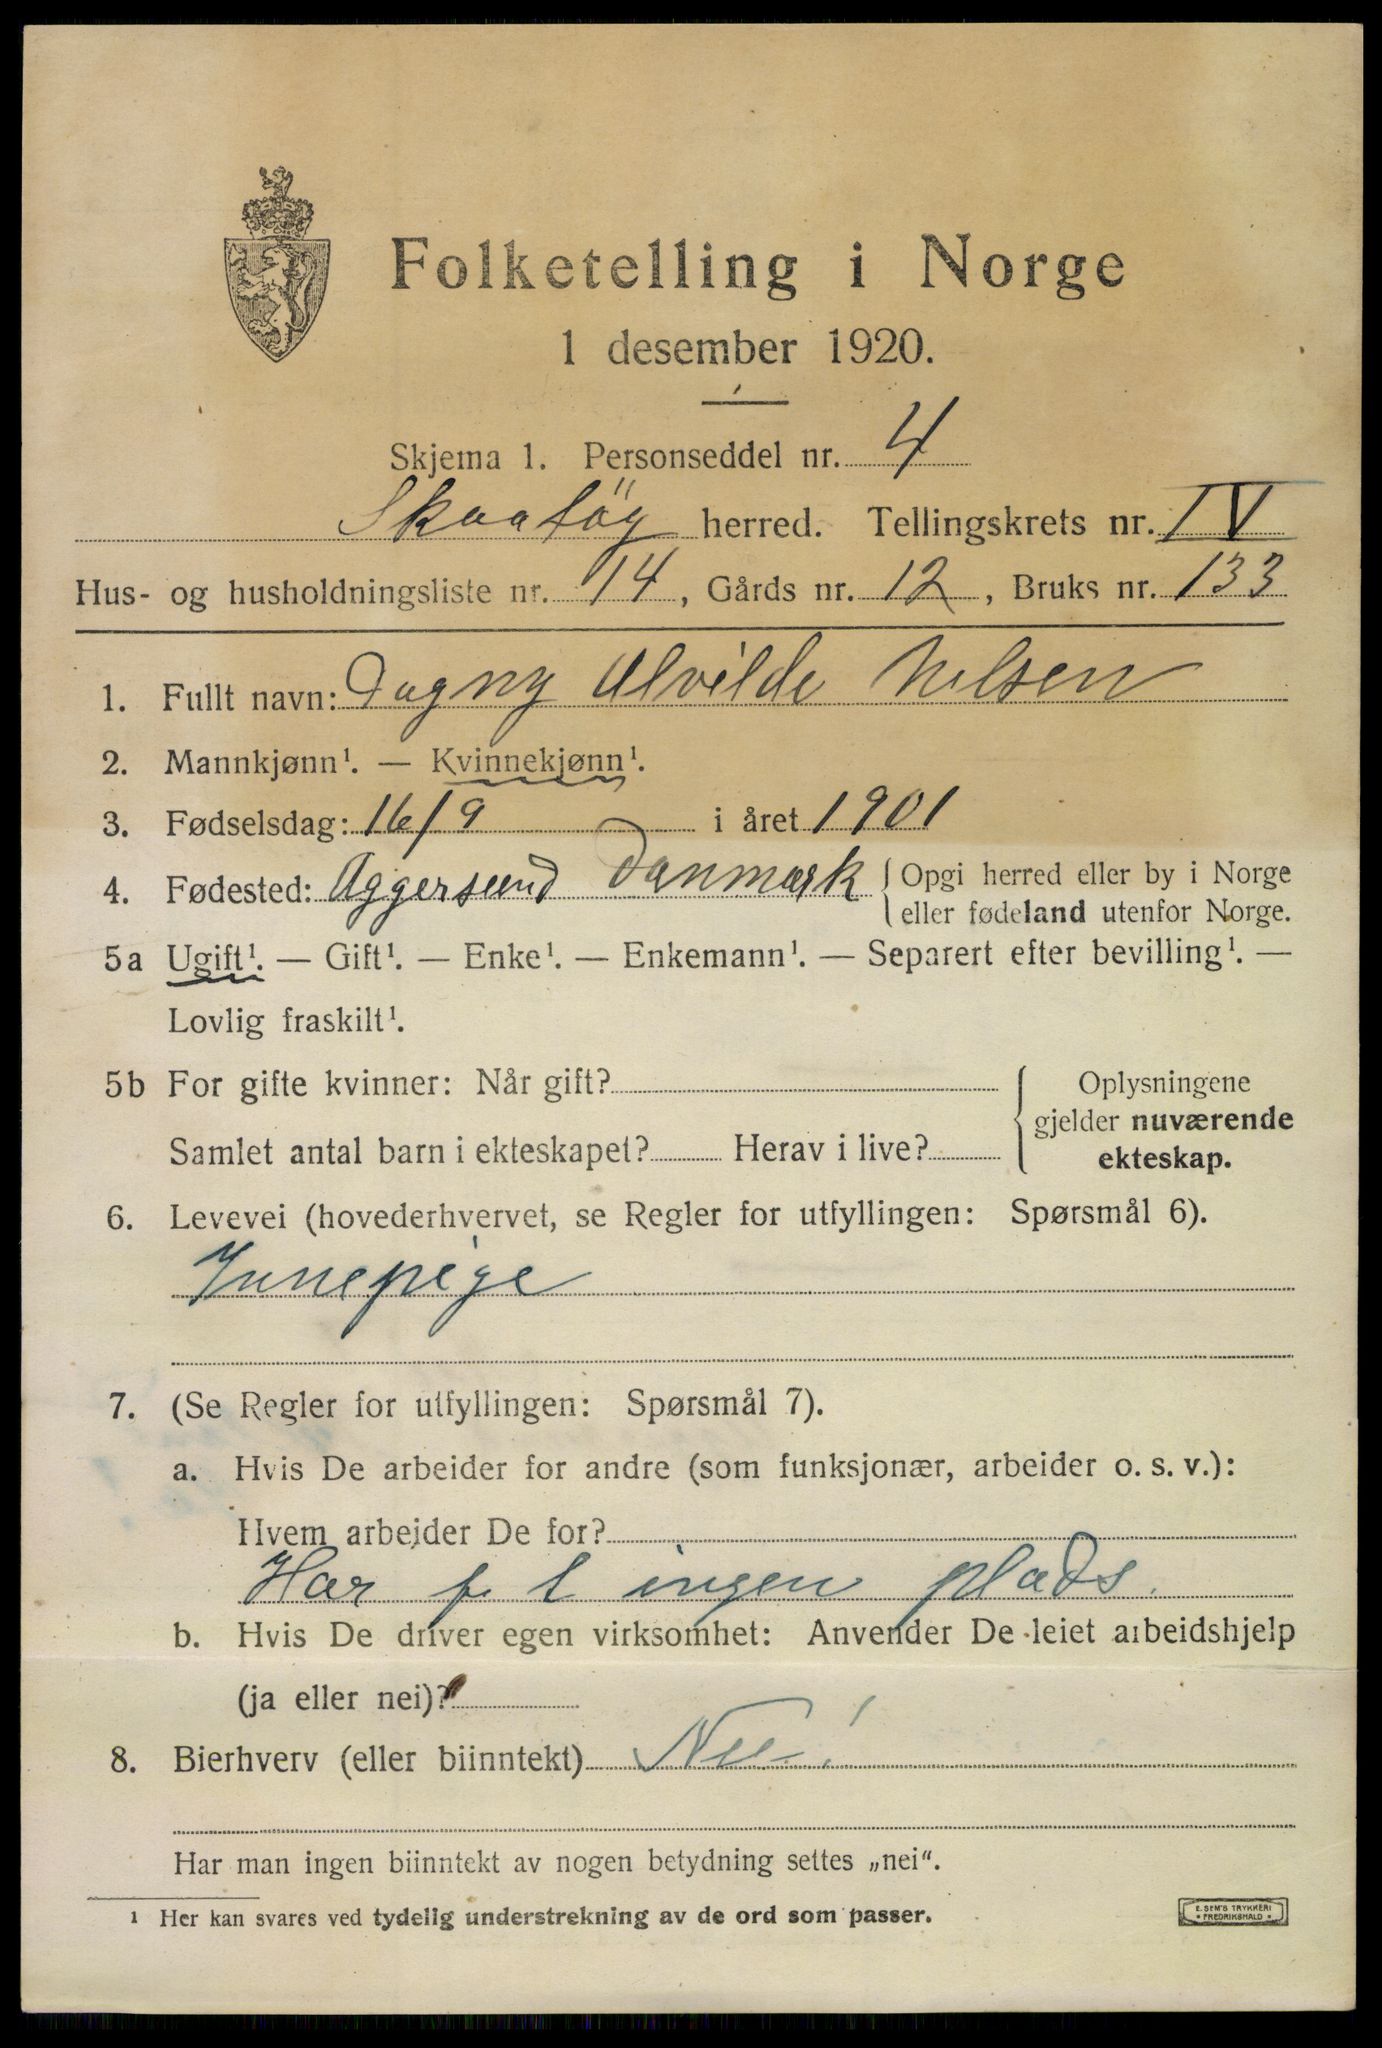 Folketelling i Norge
1 desember 1920.
Skjema 1. Personseddel nr. 4
Skaatøy herred. Tellingskrets nr. IV
Hus- og husholdningsliste nr. 14, Gårds nr. 12, Bruks nr. 133
1. Fullt navn: Dagny Alvilde Nilsen
2. Mannkjønn¹. — Kvinnekjønn¹.
3. Fødselsdag: 16/9 i året 1901
4. Fødested: Aggersund Danmark { Opgi herred eller by i Norge
eller fødeland utenfor Norge.
5a Ugift¹. — Gift¹. — Enke¹. — Enkemann¹. — Separert efter bevilling¹. —
Lovlig fraskilt¹.
5b For gifte kvinner: Når gift?
Samlet antal barn i ekteskapet? Herav i live?
Oplysningene
gjelder nuværende
ekteskap.
6. Levevei (hovederhvervet, se Regler for utfyllingen: Spørsmål 6).
Innepige
7. (Se Regler for utfyllingen: Spørsmål 7).
a. Hvis De arbeider for andre (som funksjonær, arbeider o. s. v.):
Hvem arbeider De for?
Har f. t ingen plads.
b. Hvis De driver egen virksomhet: Anvender De leiet arbeidshjelp
(ja eller nei)?
8. Bierhverv (eller biinntekt) Nei
Har man ingen biinntekt av nogen betydning settes „nei“.
¹ Her kan svares ved tydelig understrekning av de ord som passer.
E. SEM'S TRYKKERI
FREDRIKSHALD